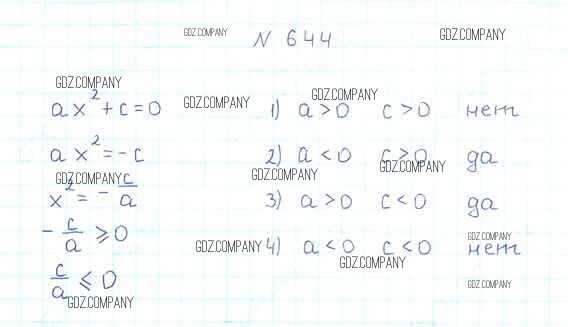 GDZ.COMPANY
N 644
GDZ.COMPANY
GDZ.COMPANY
ax²+c=0
GDZ.COMPANY
1) a>0 c>0 нет
ax²=-c
2) a<0 c>0 да
GDZ.COMPANY
GDZ.COMPANY
GDZ.COMPANY
x²=-c/a
3) a>0 c<0 да
-c/a ⩾0
GDZ.COMPANY
GDZ.COMPANY
4) a<0 c<0 нет
GDZ.COMPANY
c/a ⩽0
GDZ.COMPANY
GDZ.COMPANY